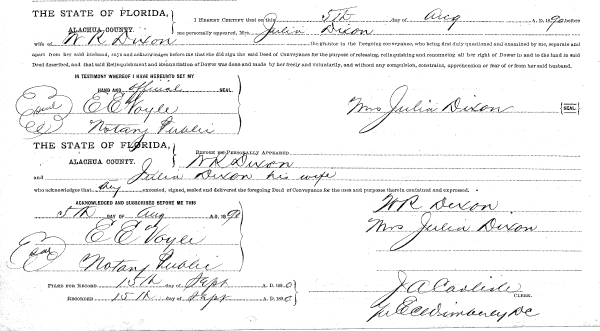 THE STATE OF FLORIDA,
ALACHUA COUNTY.
I HEREBY CERTIFY that on this 5th day of Aug A. D. 1890 before
me personally appeared, Mrs. Julia Dixon
wife of W R Dixon the grantor in the foregoing conveyance, who being first duly questioned and examined by me, separate and
apart from her said husband, says and acknowledges before me that she did sign the said Deed of Conveyance for the purpose of releasing, relinquishing and renouncing all her right of Dower in and to the land in said
Deed described, and that said Relinquishment and Renunciation of Dower was done and made by her freely and voluntarily, and without any compulsion, constraint, apprehension or fear of or from her said husband.
IN TESTIMONY WHEREOF I HAVE HEREUNTO SET MY
HAND AND official SEAL.
E E Voyle
Notary Public
Mrs Julia Dixon SEAL
THE STATE OF FLORIDA,
ALACHUA COUNTY.
BEFORE ME PERSONALLY APPEARED
W R Dixon
and Julia Dixon his wife
who acknowledges that they executed, signed, sealed and delivered the foregoing Deed of Conveyance for the uses and purposes therein contained and expressed.
ACKNOWLEDGED AND SUBSCRIBED BEFORE ME THIS
5th DAY OF Aug A. D. 1890
W R Dixon
E E Voyle
Mrs Julia Dixon
Notary Public
FILED FOR RECORD 15th day of Sept A. D. 1890
RECORDED 15th day of Sept A. D. 1890
J A Carlisle
CLERK.
pr E C Wimberly DC